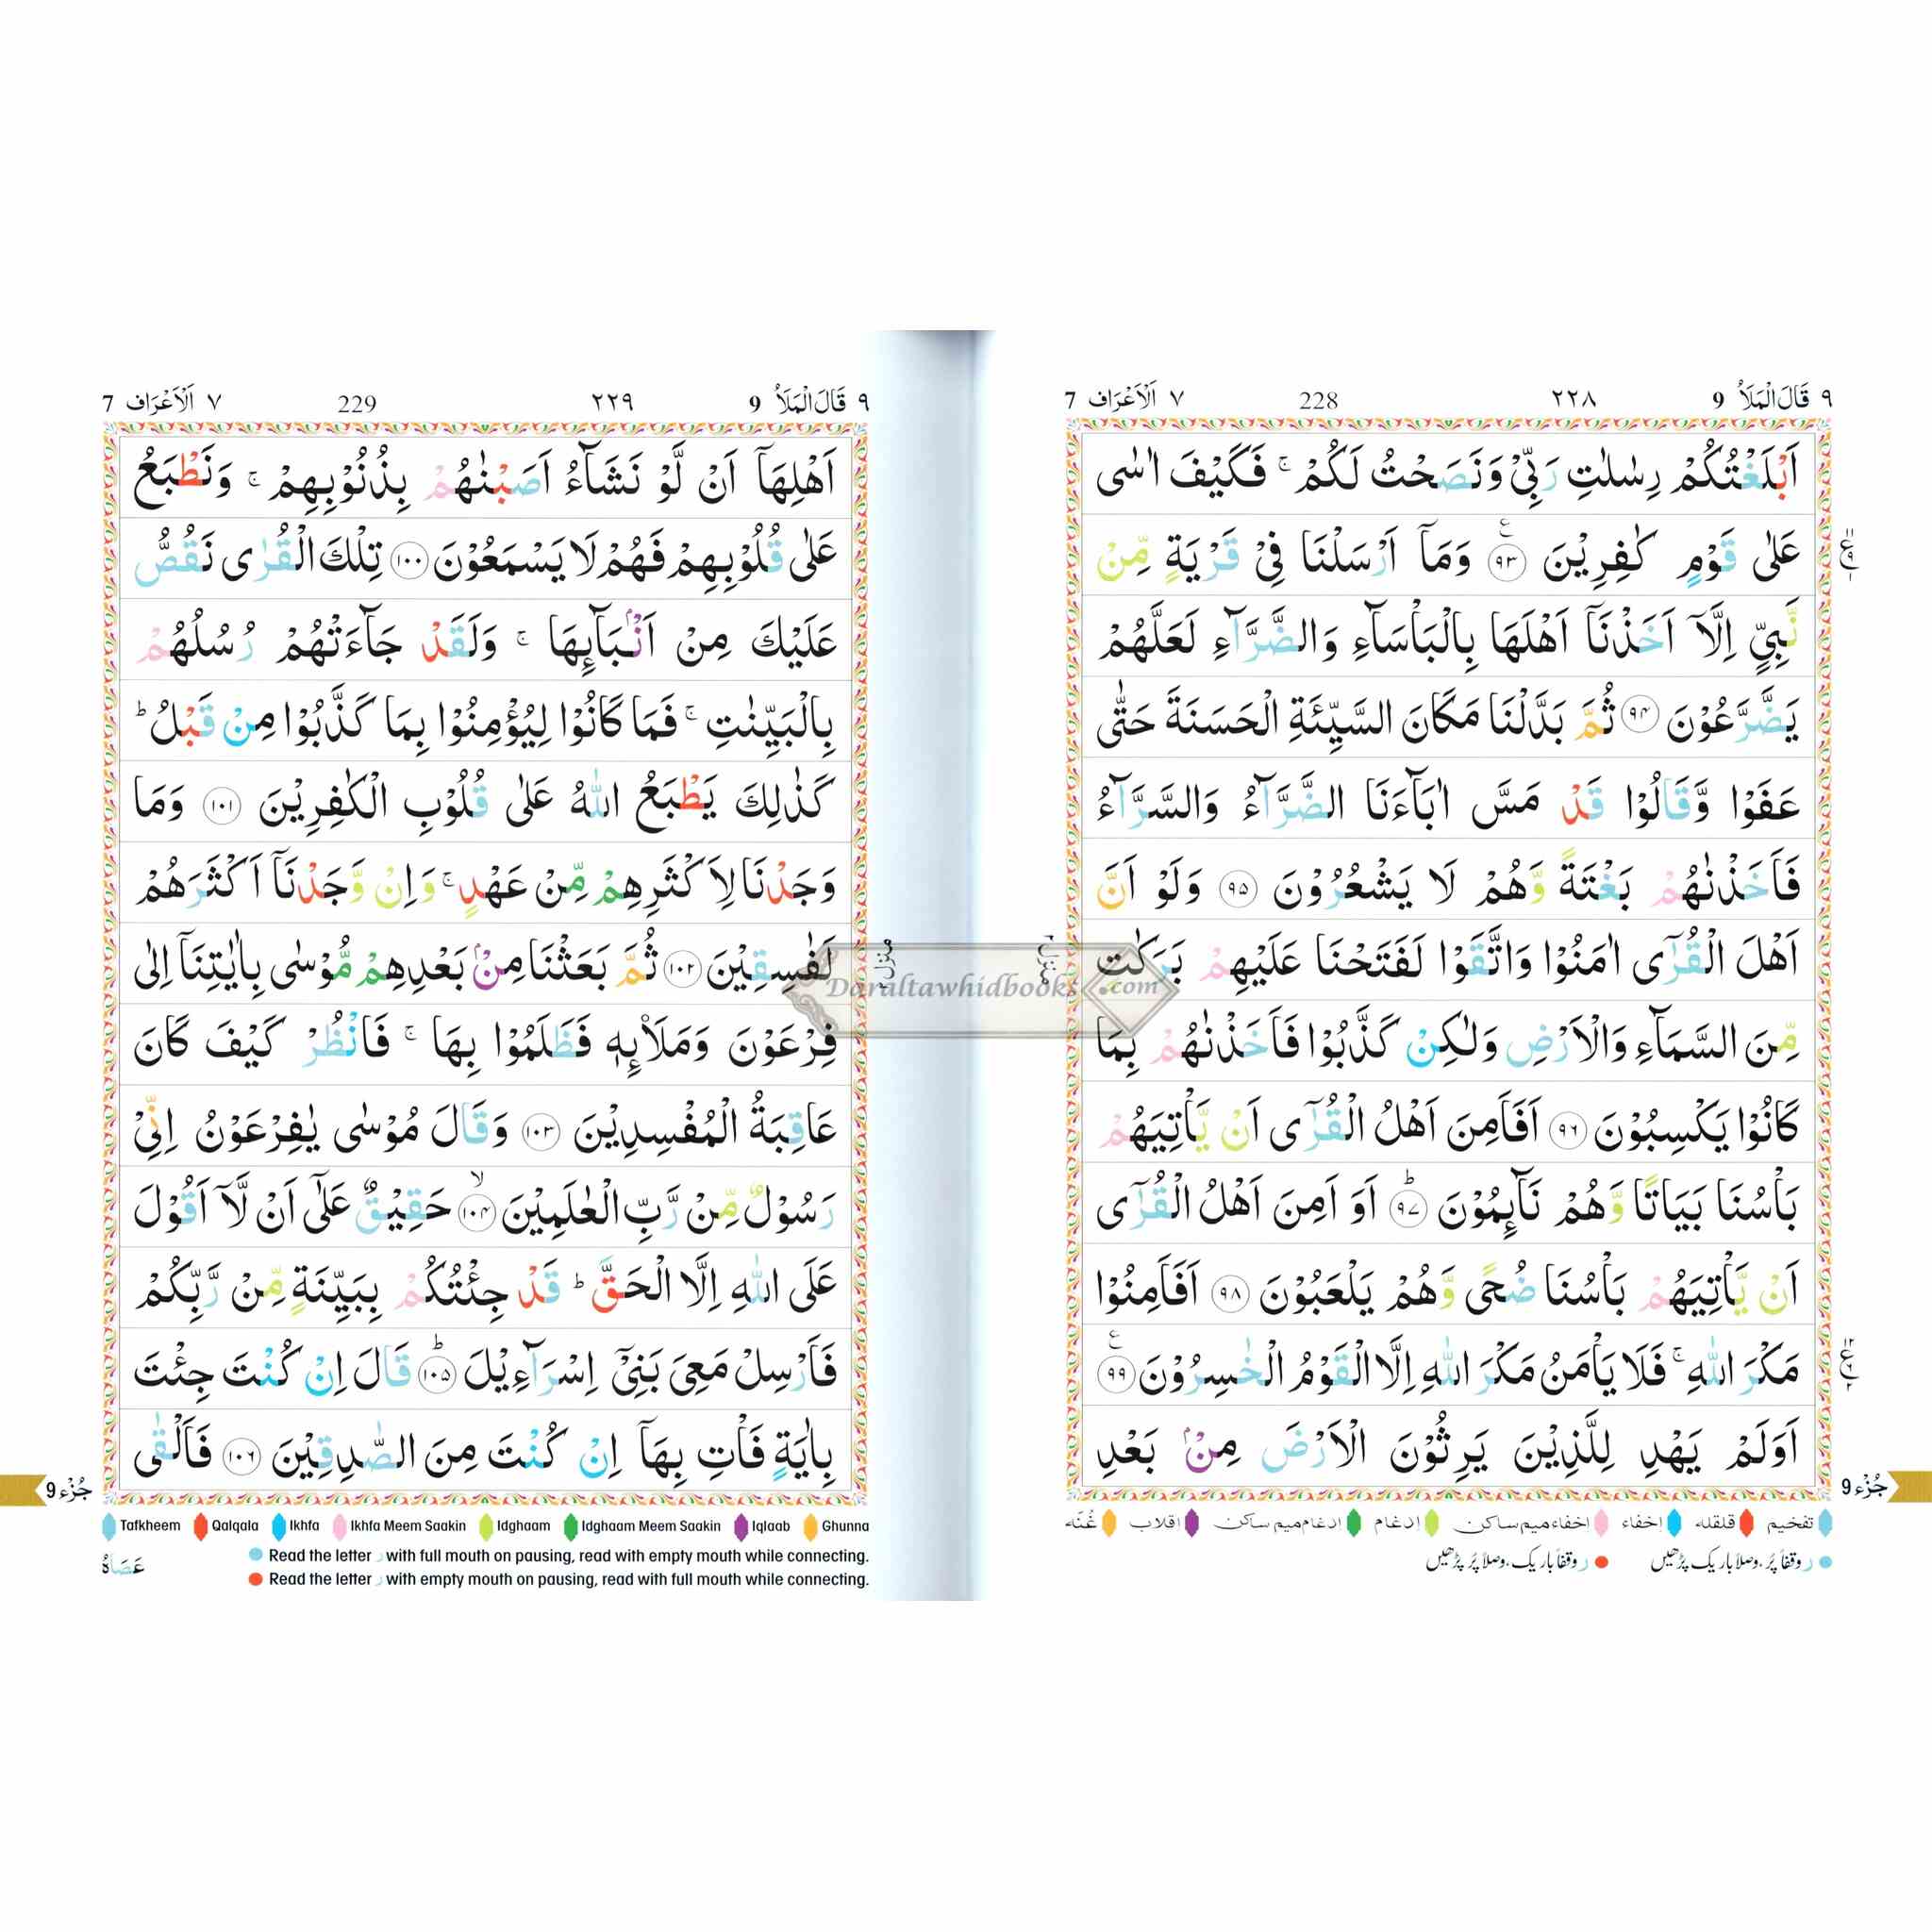 ٩ قَالَ الْمَلَاُ 9 ٢٢٨ 228 ٧ اَلْاَعْرَاف 7
اَبْلَغْتُكُمْ رِسٰلٰتِ رَبِّىْ وَنَصَحْتُ لَكُمْ ۚ فَكَيْفَ اٰسٰى
عَلٰى قَوْمٍ كٰفِرِيْنَ ﴿۹۳﴾ وَمَاۤ اَرْسَلْنَا فِىْ قَرْيَةٍ مِّنْ
نَّبِىٍّ اِلَّاۤ اَخَذْنَاۤ اَهْلَهَا بِالْبَاْسَآءِ وَالضَّرَّآءِ لَعَلَّهُمْ
يَضَّرَّعُوْنَ ﴿۹۴﴾ ثُمَّ بَدَّلْنَا مَكَانَ السَّيِّئَةِ الْحَسَنَةَ حَتّٰى
عَفَوْا وَّقَالُوْا قَدْ مَسَّ اٰبَآءَنَا الضَّرَّآءُ وَالسَّرَّآءُ
فَاَخَذْنٰهُمْ بَغْتَةً وَّهُمْ لَا يَشْعُرُوْنَ ﴿۹۵﴾ وَلَوْ اَنَّ
اَهْلَ الْقُرٰٓى اٰمَنُوْا وَاتَّقَوْا لَفَتَحْنَا عَلَيْهِمْ بَرَكٰتٍ
مِّنَ السَّمَآءِ وَالْاَرْضِ وَلٰكِنْ كَذَّبُوْا فَاَخَذْنٰهُمْ بِمَا
كَانُوْا يَكْسِبُوْنَ ﴿۹۶﴾ اَفَاَمِنَ اَهْلُ الْقُرٰٓى اَنْ يَّاْتِيَهُمْ
بَاْسُنَا بَيَاتًا وَّهُمْ نَآئِمُوْنَ ﴿۹۷﴾ؕ اَوَ اَمِنَ اَهْلُ الْقُرٰٓى
اَنْ يَّاْتِيَهُمْ بَاْسُنَا ضُحًى وَّهُمْ يَلْعَبُوْنَ ﴿۹۸﴾ اَفَاَمِنُوْا
مَكْرَ اللّٰهِ ۚ فَلَا يَاْمَنُ مَكْرَ اللّٰهِ اِلَّا الْقَوْمُ الْخٰسِرُوْنَ ﴿۹۹﴾
اَوَلَمْ يَهْدِ لِلَّذِيْنَ يَرِثُوْنَ الْاَرْضَ مِنْۢ بَعْدِ
جُزْء 9
تفخیم قلقلہ اِخفاء اِخفاء میم ساکن اِدغام اِدغام میم ساکن اِقلاب غُنّه
ر وقفاً پُر، وصلاً باریک پڑھیں ر وقفاً باریک، وصلاً پُر پڑھیں
منزل ٢
٩ قَالَ الْمَلَاُ 9 ٢٢٩ 229 ٧ اَلْاَعْرَاف 7
اَهْلِهَاۤ اَنْ لَّوْ نَشَآءُ اَصَبْنٰهُمْ بِذُنُوْبِهِمْ ۚ وَنَطْبَعُ
عَلٰى قُلُوْبِهِمْ فَهُمْ لَا يَسْمَعُوْنَ ﴿۱۰۰﴾ تِلْكَ الْقُرٰى نَقُصُّ
عَلَيْكَ مِنْ اَنْۢبَآئِهَا ۚ وَلَقَدْ جَآءَتْهُمْ رُسُلُهُمْ
بِالْبَيِّنٰتِ ۚ فَمَا كَانُوْا لِيُؤْمِنُوْا بِمَا كَذَّبُوْا مِنْ قَبْلُ ؕ
كَذٰلِكَ يَطْبَعُ اللّٰهُ عَلٰى قُلُوْبِ الْكٰفِرِيْنَ ﴿۱۰۱﴾ وَمَا
وَجَدْنَا لِاَكْثَرِهِمْ مِّنْ عَهْدٍ ۚ وَاِنْ وَّجَدْنَاۤ اَكْثَرَهُمْ
لَفٰسِقِيْنَ ﴿۱۰۲﴾ ثُمَّ بَعَثْنَا مِنْۢ بَعْدِهِمْ مُّوْسٰى بِاٰيٰتِنَاۤ اِلٰى
فِرْعَوْنَ وَمَلَاۡئِهٖ فَظَلَمُوْا بِهَا ۚ فَانْظُرْ كَيْفَ كَانَ
عَاقِبَةُ الْمُفْسِدِيْنَ ﴿۱۰۳﴾ وَقَالَ مُوْسٰى يٰفِرْعَوْنُ اِنِّىْ
رَسُوْلٌ مِّنْ رَّبِّ الْعٰلَمِيْنَ ﴿۱۰۴﴾ۙ حَقِيْقٌ عَلٰٓى اَنْ لَّاۤ اَقُوْلَ
عَلَى اللّٰهِ اِلَّا الْحَقَّ ؕ قَدْ جِئْتُكُمْ بِبَيِّنَةٍ مِّنْ رَّبِّكُمْ
فَاَرْسِلْ مَعِىَ بَنِىْۤ اِسْرَآءِيْلَ ﴿۱۰۵﴾ؕ قَالَ اِنْ كُنْتَ جِئْتَ
بِاٰيَةٍ فَاْتِ بِهَاۤ اِنْ كُنْتَ مِنَ الصّٰدِقِيْنَ ﴿۱۰۶﴾ فَاَلْقٰى
جُزْء 9
منزل ٢
Tafkheem Qalqala Ikhfa Ikhfa Meem Saakin Idghaam Idghaam Meem Saakin Iqlaab Ghunna
Read the letter ر with full mouth on pausing, read with empty mouth while connecting.
Read the letter ر with empty mouth on pausing, read with full mouth while connecting.
عَصَاهُ
Daraltawhidbooks .com